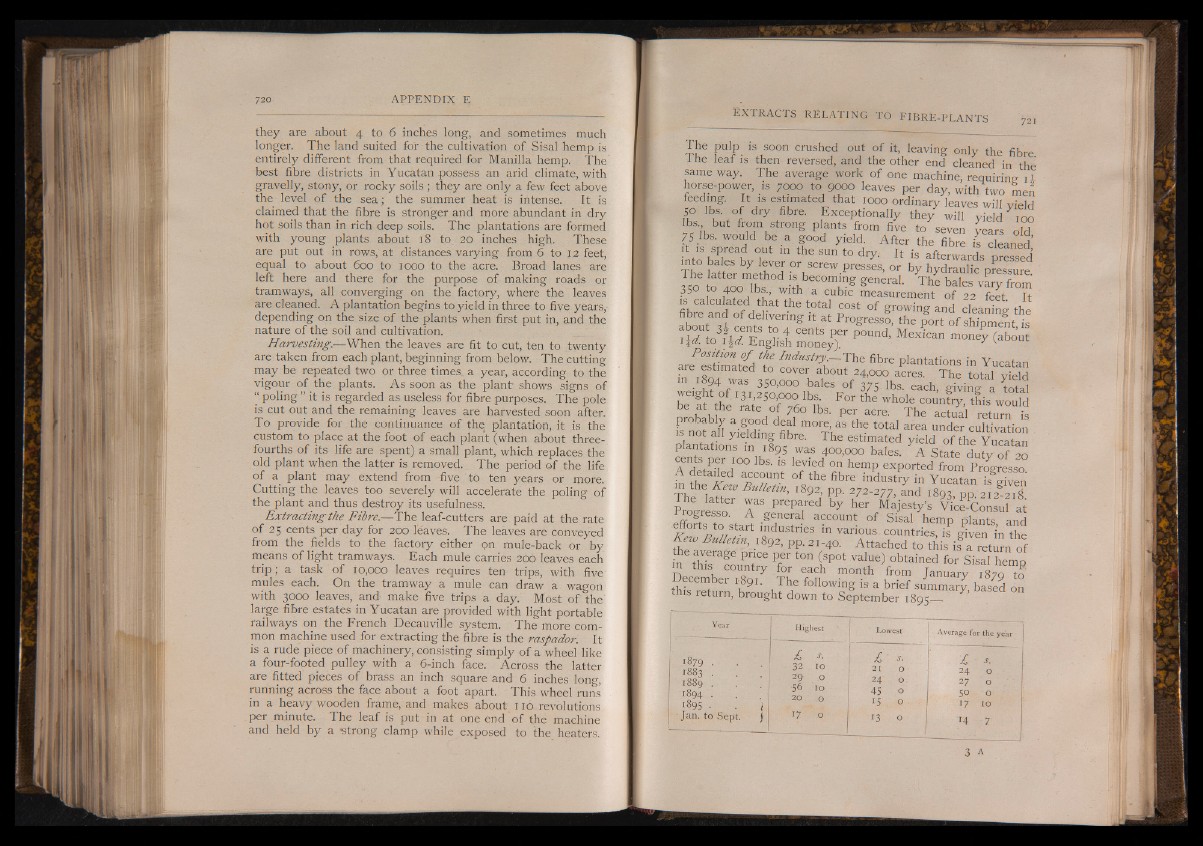 720 APPENDIX E
they are about 4 to 6 inches long, and sometimes much
longer. The land suited for the cultivation of Sisal hemp is
entirely different from that required for Manilla hemp. The
best fibre districts in Yucatan possess an arid climate, with
gravelly, stony, or rocky soils ; they are only a few feet above
the level of the sea ; the summer heat is intense. It is
claimed that the fibre is stronger and more abundant in dry
hot soils than in rich deep soils. The plantations are formed
with young plants about 18 to 20 inches high. These
are put out in rows, at distances varying from 6 to 12 feet,
equal to about 600 to 1000 to the acre. Broad lanes are
left here and there for the purpose of making roads or
tramways, all converging on the factory, where the leaves
are cleaned. A plantation begins to yield in three to five years,
depending on the size of the plants when first put in, and the
nature of the soil and cultivation.
Harvesting.—When the leaves are fit to cut, ten to twenty
are taken from each plant, beginning from below. The cutting
may be repeated two or three times a year, according to the
vigour of the plants. As soon as the plant shows signs of
“ poling ” it is regarded as useless for fibre purposes. The pole
is cut out and the remaining leaves are harvested soon after.
To provide for the continuance of the plantation, it is the
custom to place at the foot of each plant (when about three-
fourths of its life are spent) a small plant, which replaces the
old plant when the latter is removed. The period of the life
of a plant may extend from five to ten years or more.
Cutting the leaves too severely will accelerate the poling of
the plant and thus destroy its usefulness.
Extracting the Fibre.—The leaf-cutters are paid at the rate
of 25 cents per day for 200 leaves. The leaves are conveyed
from the fields to the factory either on mule-back or by
means of light tramways. Each mule carries 200 leaves each
trip ; a task of 10,000 leaves requires ten trips, with five
mules each. On the tramway a mule can draw a wagon
with 3000 leaves, and make five trips a day. Most of the
large fibre estates in Yucatan are provided with light portable
railways on the French Decauville system. The more com-
mon machine used for extracting the fibre is the raspador. It
is a rude piece of machinery, consisting simply of a wheel like
a four-footed pulley with a 6-inch face. Across the latter
are fitted pieces of brass an inch square and 6 inches long,
running across the face about a foot apart. This wheel runs
in a heavy wooden frame, and makes about 110 revolutions
per minute. The leaf is put in at one end of the machine
and held by a strong clamp while exposed to the heaters.
EXTRACTS RELATING TO FIBRE-PLANTS 721
The pulp is soon crushed out of it, leaving only the fibre.
The leaf is then reversed, and the other end cleaned in the
same way. The average work of one machine, requiring 1½
horse-power, is 7000 to 9000 leaves per day, with two men
feeding. It is estimated that 1000 ordinary leaves will yield
50 lbs. of dry fibre. Exceptionally they will yield 100
lbs., but from strong plants from five to seven years old,
75 lbs. would be a good yield. After the fibre is cleaned,
it is spread out in the sun to dry. It is afterwards pressed
into bales by lever or screw presses, or by hydraulic pressure.
The latter method is becoming general. The bales vary from
350 to 400 lbs., with a cubic measurement of 22 feet. It
is calculated that the total cost of growing and cleaning the
fibre and of delivering it at Progresso, the port of shipment, is
about 3½ cents to 4 cents per pound, Mexican money (about
to English money).
Position of the Industry.—The fibre plantations in Yucatan
are estimated to cover about 24,000 acres. The total yield
in 1894 was 350,000 bales of 375 lbs. each, giving a total
weight of 131,250,000 lbs. For the whole country, this would
be at the rate of 760 lbs. per acre. The actual return is
probably a good deal more, as the total area under cultivation
is not all yielding fibre. The estimated yield of the Yucatan
plantations in 1895 was 400,000 bales. A State duty of 20
cents per 100 lbs. is levied on hemp exported from Progresso.
A detailed account of the fibre industry in Yucatan is given
in the Kew Bulletin, 1892, pp. 272-277, and 1893, pp. 212-218.
The latter was prepared by her Majesty's Vice-Consul at
Progresso. A general account of Sisal hemp plants, and
efforts to start industries in various countries, is given in the
Kew Bulletin, 1892, pp. 21-40. Attached to this is a return of
the average price per ton (spot value) obtained for Sisal hemp
in this country for each month from January 1879 to
December 1891. The following is a brief summary, based on
this return, brought down to September 1895—
Year Highest Lowest Average for the year
£ s. £ s. £ s.
1879 . . . 32 10 21 0 24 0
1883 . . . 29 0 24 0 27 0
1889 . . . 56 10 45 0 50 0
1894 . . . 20 0 15 0 17 10
1895 . . }
Jan. to Sept. } 17 0 13 0 14 7
3 A